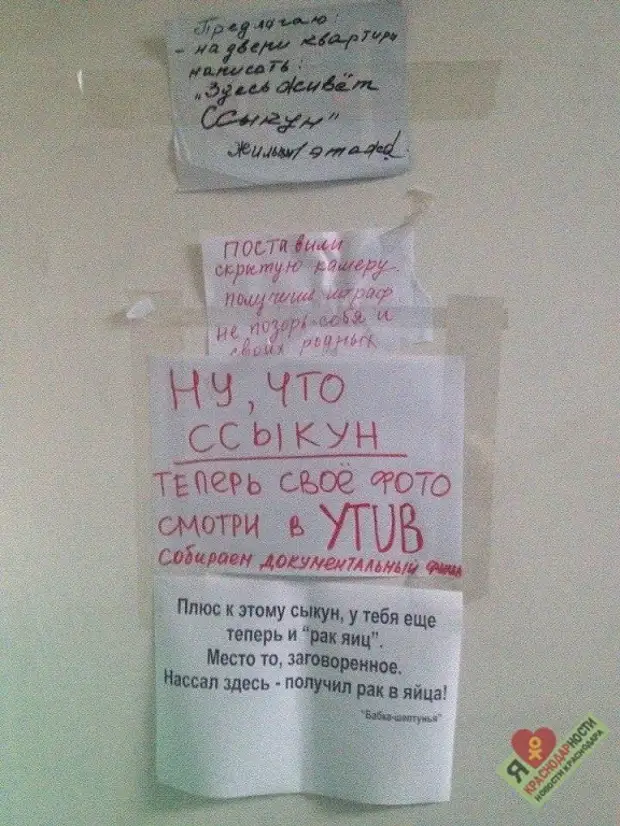 Предлагаю:
- на двери квартиры
написать:
"Здесь живёт
Ссыкун"
жильцы этажа!
поставили
скрытую камеру.
получишь штраф
не позорь себя и
своих родных
НУ, ЧТО
ССЫКУН
ТЕПЕРЬ СВОЁ ФОТО
СМОТРИ В YTUB
Собираем документальный фильм
Плюс к этому сыкун, у тебя еще
теперь и "рак яиц".
Место то, заговоренное.
Нассал здесь - получил рак в яйца!
"Бабка-шептунья"
Я
КРАСНОДАРНОСТИ
НОВОСТИ КРАСНОДАРА